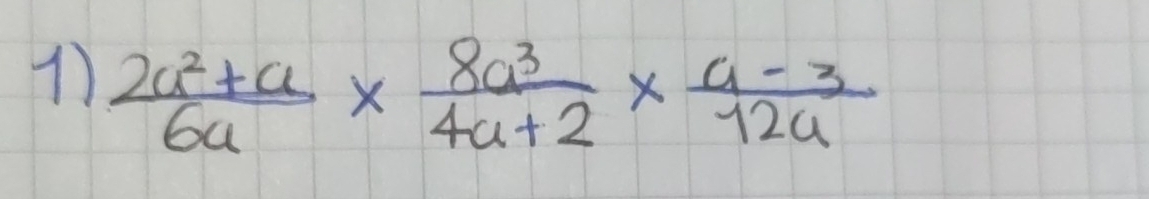 1) \frac{2a²+a}{6a} × \frac{8a³}{4a+2} × \frac{a-3}{12a}